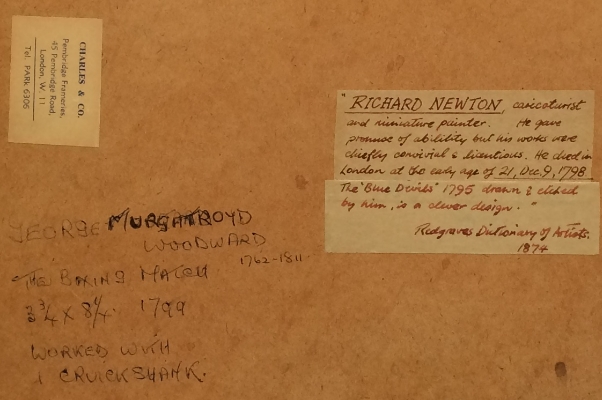 CHARLES & CO.
Pembridge Frameries,
45 Pembridge Road,
London, W. 11
Tel. PARK 6306
" RICHARD NEWTON, caricaturist
and miniature painter. He gave
promise of abilility but his works were
chiefly convivial & licentious. He died in
London at the early age of 21, Dec. 9, 1798
The 'Blue Devils' 1795 drawn & etched
by him, is a clever design. "
Redgraves Dictionary of Artists.
1874
GEORGE MURGATROYD
WOODWARD
1762-1811
THE BOXING MATCH
3 3/4 x 8 1799
WORKED WITH
I CRUICKSHANK.